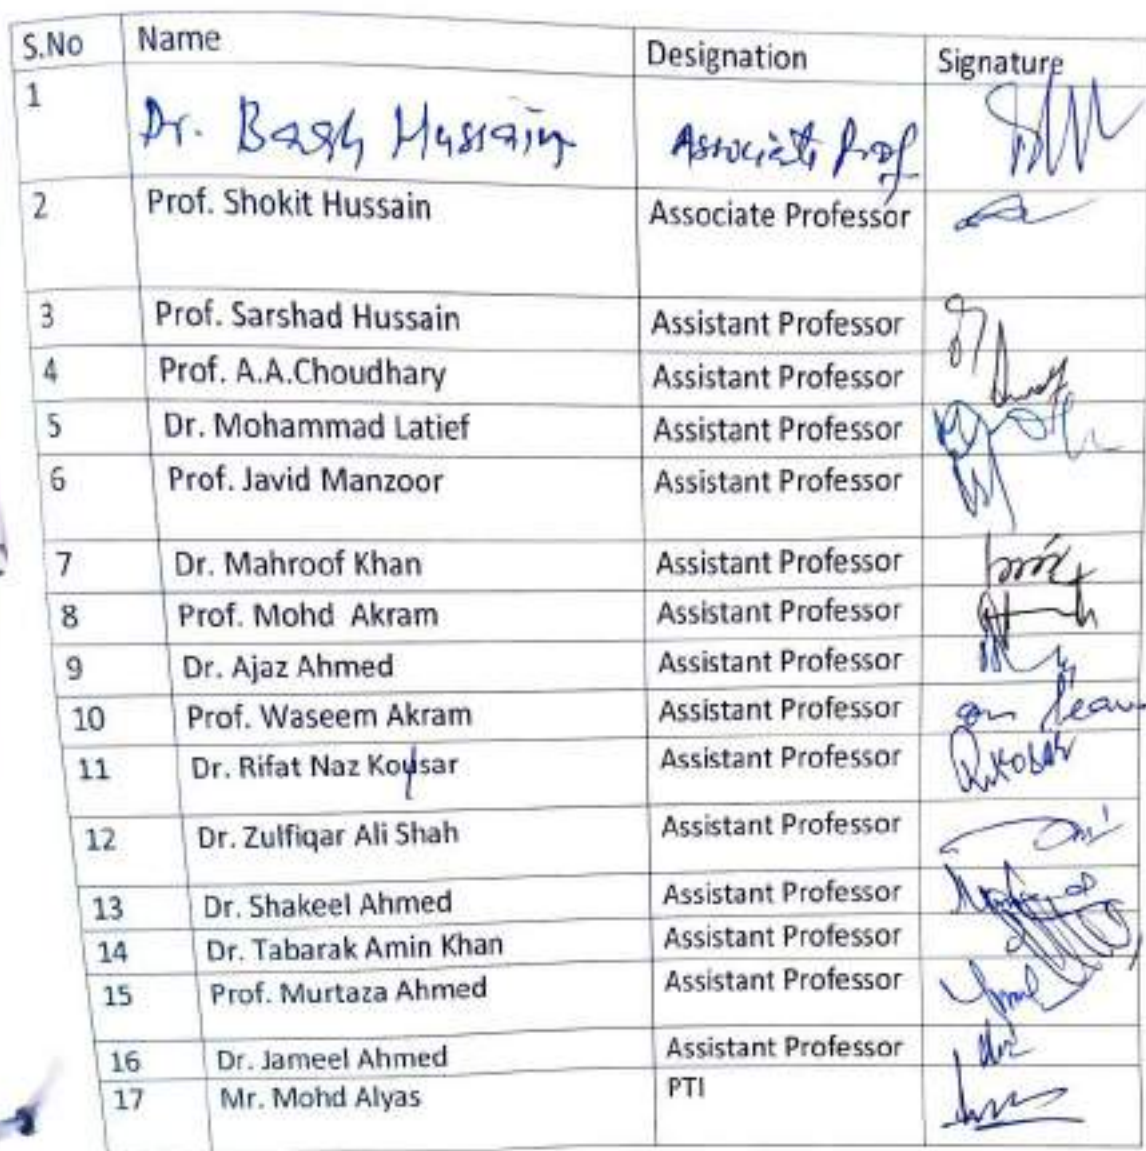 S.No Name Designation Signature
1 Dr. Bagh Hussain Associate Prof
2 Prof. Shokit Hussain Associate Professor
3 Prof. Sarshad Hussain Assistant Professor
4 Prof. A.A.Choudhary Assistant Professor
5 Dr. Mohammad Latief Assistant Professor
6 Prof. Javid Manzoor Assistant Professor
7 Dr. Mahroof Khan Assistant Professor
8 Prof. Mohd Akram Assistant Professor
9 Dr. Ajaz Ahmed Assistant Professor
10 Prof. Waseem Akram Assistant Professor on leave
11 Dr. Rifat Naz Kousar Assistant Professor
12 Dr. Zulfiqar Ali Shah Assistant Professor
13 Dr. Shakeel Ahmed Assistant Professor
14 Dr. Tabarak Amin Khan Assistant Professor
15 Prof. Murtaza Ahmed Assistant Professor
16 Dr. Jameel Ahmed Assistant Professor
17 Mr. Mohd Alyas PTI